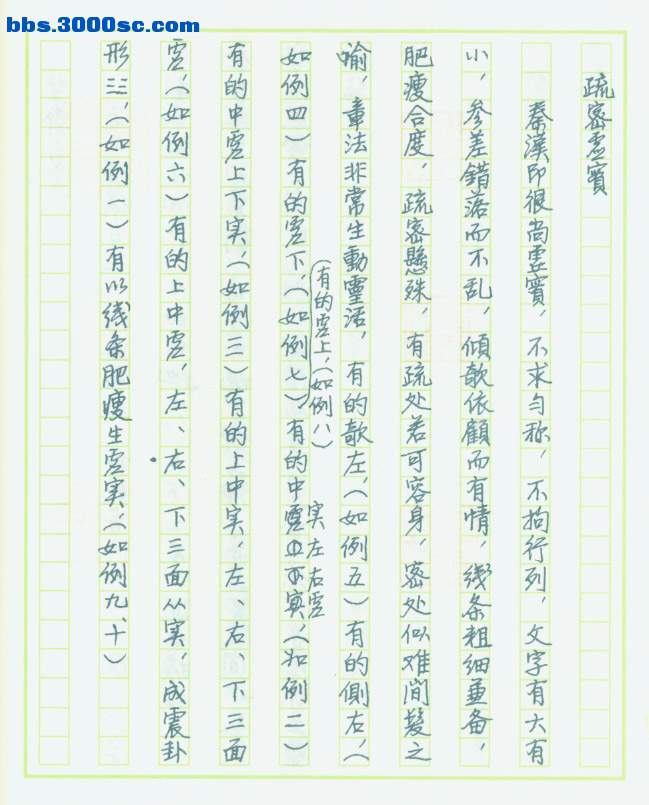 bbs.3000sc.com
疏密虚實
秦漢印很尚虚實，不求匀称，不拘行列，文字有大有
小，参差錯落而不乱，傾欹依顧而有情，线条粗细垂备，
肥瘦合度，疏密懸殊，有疏处若可容身，密处似难间髮之
喻，章法非常生動靈活，有的欹左，（如例五）有的側右，（
（有的虚上，（如例八）
如例四）有的虚下，（如例七），有的中實，（如例二）
实左右虚
有的中虚上下实，（如例三）有的上中实，左、右、下三面
虚，（如例六）有的上中虚，左、右、下三面从实，成震卦
形☳，（如例一）有以线条肥瘦生虚实，（如例九、十）